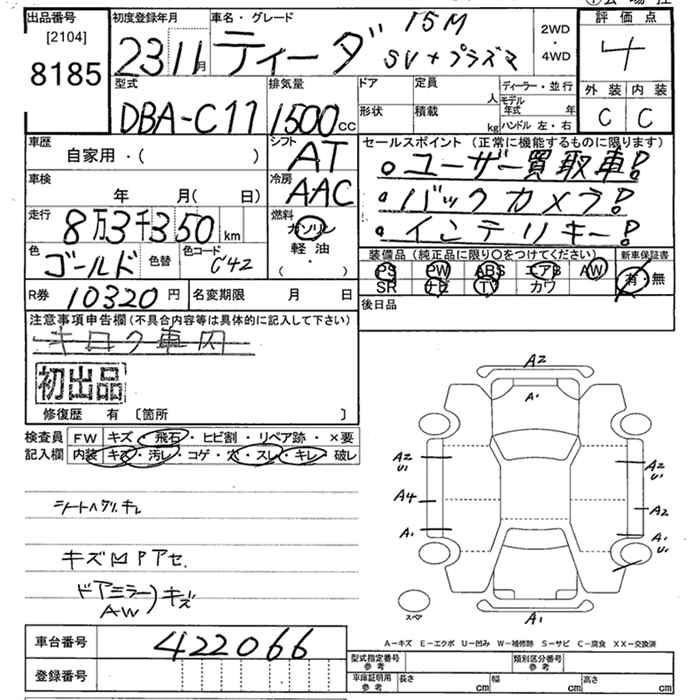 出品番号
[2104]
8185
初度登録年月
23 11月
車名・グレード
ティーダ
15M
SV+プラズマ
2WD
・
4WD
評価点
4
外装 内装
C C
型式
DBA-C11
排気量
1500cc
ドア
形状
定員
人
積載
kg
ディーラー・並行
モデル年式 年
ハンドル 左・右
車歴
自家用・( )
シフト
AT
車検
年 月( 日)
冷房
AAC
走行
8万3千350km
燃料
ガソリン
軽油
( ・ )
色
ゴールド
色替
色コード
C42
R券 10320円
名変期限 月 日
セールスポイント(正常に機能するものに限ります)
。ユーザー買取車!
。バックカメラ!
。インテリキー!
装備品(純正品に限り○をつけてください)
PS PW ABS エアB AW
SR ナビ TV カワ
新車保証書
有・無
後日品
注意事項申告欄(不具合内容等は具体的に記入して下さい)
キロク車内
初出品
修復歴 有 〔箇所 〕
検査員記入欄
FW キズ・飛石・ヒビ割・リペア跡・×要
内装 キズ・汚レ・コゲ・穴・スレ・キレ・破レ
シートヘタリ.キレ
キズ凹Pアセ.
ドアミラー)キズ
AW
A2
A1
A2
U1
A4
A1
A2
U1
A2
A1
U1
A1
スペア
車台番号 422066
登録番号
A−キズ E−エクボ U−凹み W−補修跡 S−サビ C−腐食 XX−交換済
型式指定番号
参考
類別区分番号
参考
車庫証明用
参考
長さ cm 幅 cm 高さ cm